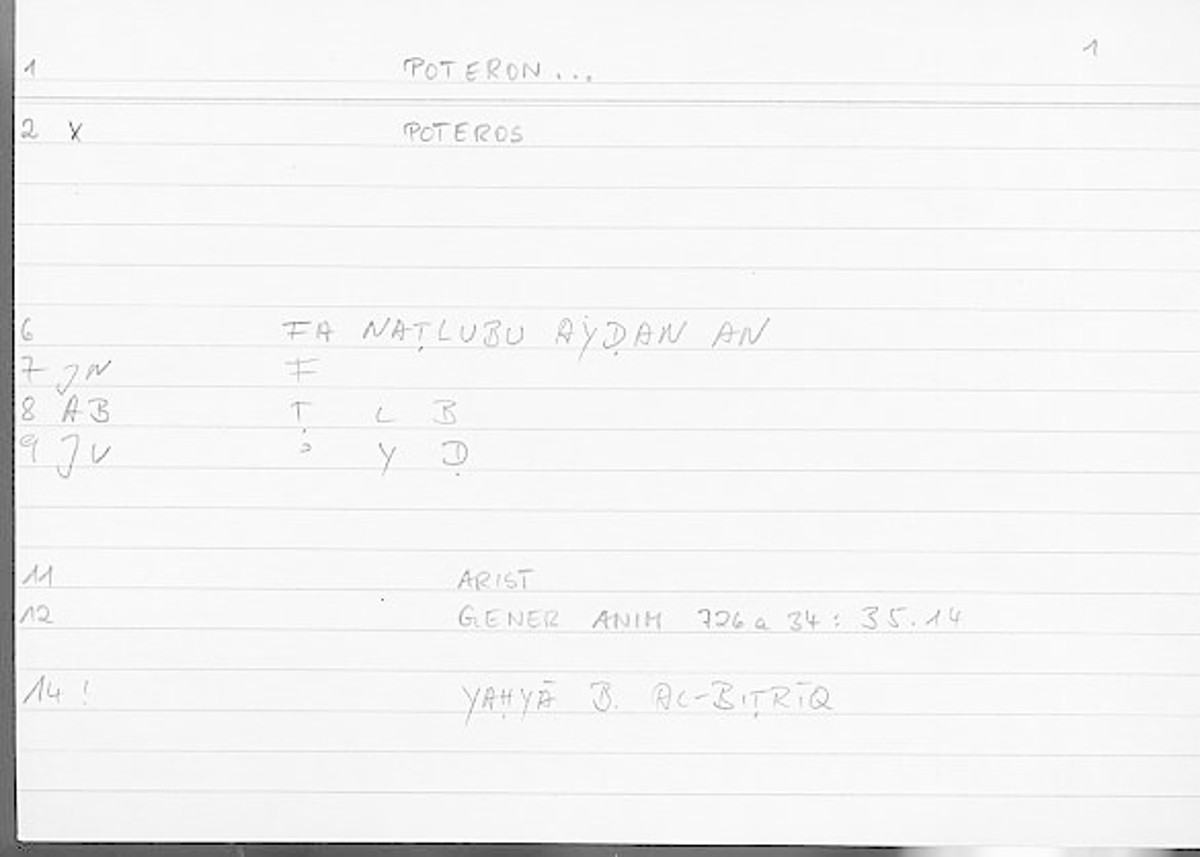 1
1 POTERON...
2 X POTEROS
6 FA NAṬLUBU AYḌAN AN
7 JN F
8 AB Ṭ L B
9 JV ʾ Y Ḍ
11 ARIST
12 GENER ANIM 726a 34 : 35.14
14 ! YAḤYĀ B. AL-BIṬRĪQ